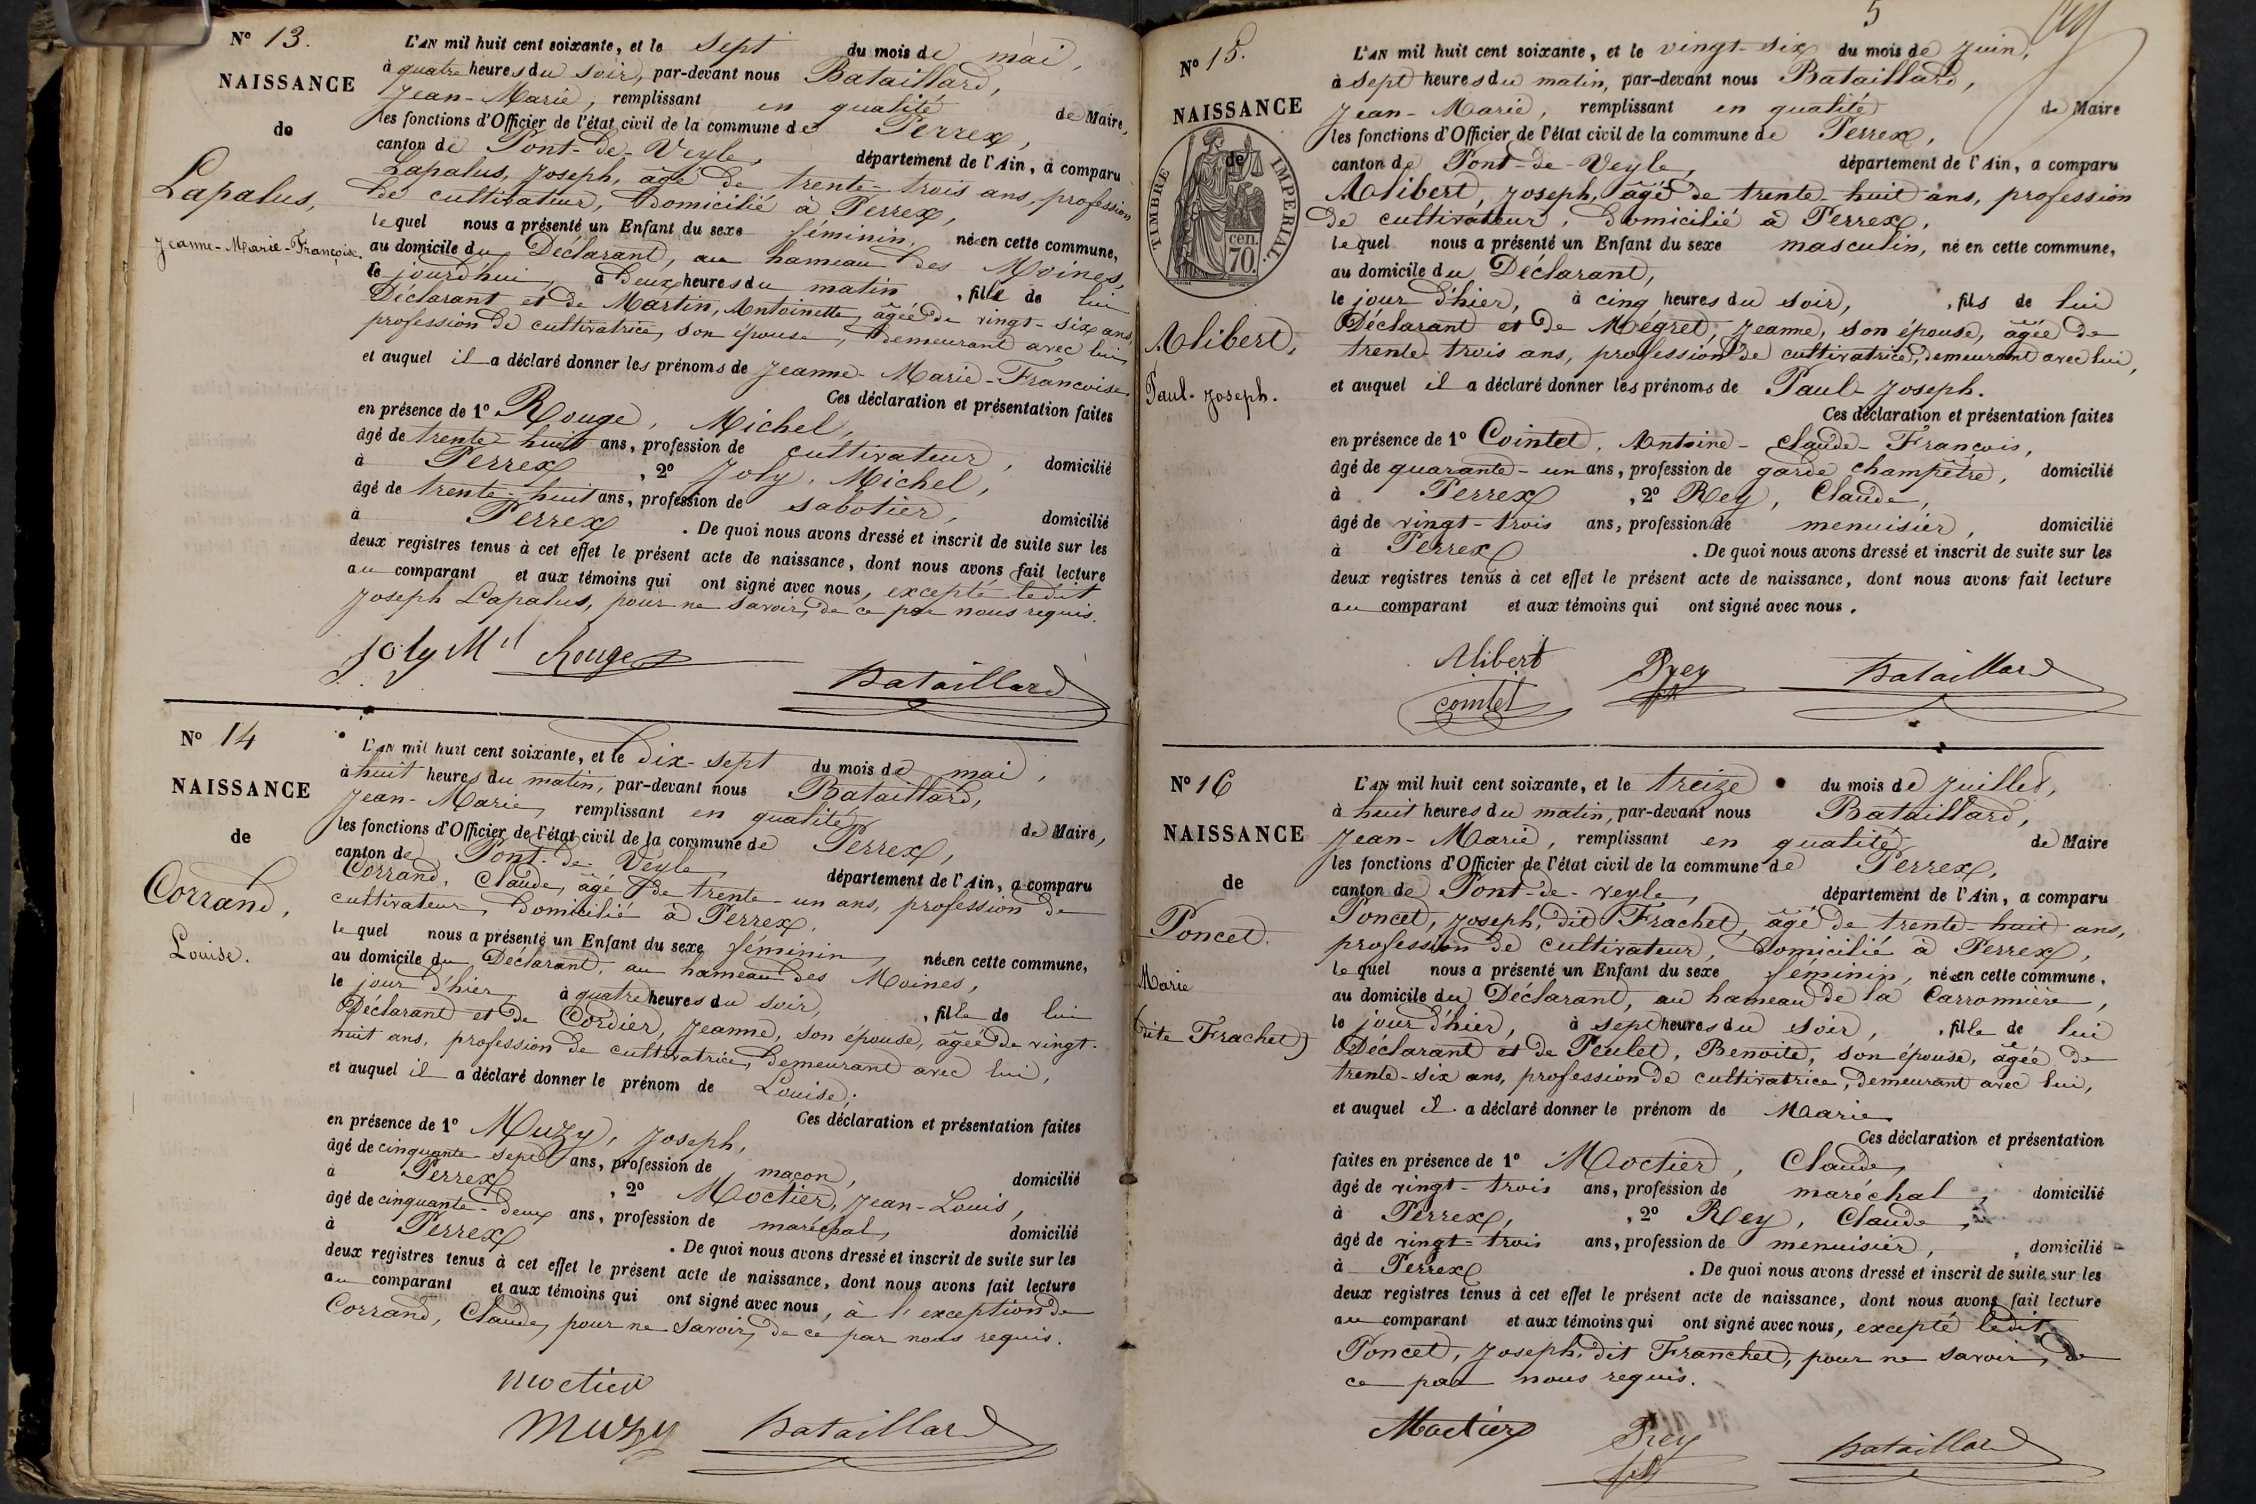 N° 13.
NAISSANCE
de
Lapalus,
Jeanne-Marie-Françoise.
L'AN mil huit cent soixante, et le sept du mois de mai,
à quatre heures du soir, par-devant nous Bataillard,
Jean-Marie, remplissant en qualité de Maire,
les fonctions d'Officier de l'état civil de la commune de Perrex,
canton de Pont-de-Veyle, département de l'Ain, a comparu
Lapalus, Joseph, âgé de trente-trois ans, profession
de cultivateur, domicilié à Perrex,
lequel nous a présenté un Enfant du sexe féminin, née en cette commune,
au domicile du Déclarant, au hameau des Moines,
le jourdhui, à deux heures du matin, fille de lui
Déclarant et de Martin, Antoinette, âgée de vingt-six ans,
profession de cultivatrice, son épouse, demeurant avec lui,
et auquel il a déclaré donner les prénoms de Jeanne-Marie-Françoise.
Ces déclaration et présentation faites
en présence de 1° Rouge, Michel,
âgé de trente-huit ans, profession de cultivateur, domicilié
à Perrex, 2° Joly, Michel,
âgé de trente-huit ans, profession de sabotier, domicilié
à Perrex. De quoi nous avons dressé et inscrit de suite sur les
deux registres tenus à cet effet le présent acte de naissance, dont nous avons fait lecture
au comparant et aux témoins qui ont signé avec nous, excepté ledit
Joseph Lapalus, pour ne savoir, de ce par nous requis.
Joly Mel Rouge Bataillard
N° 14
NAISSANCE
de
Corrand,
Louise.
L'AN mil huit cent soixante, et le dix-sept du mois de mai,
à huit heures du matin, par-devant nous Bataillard,
Jean-Marie, remplissant en qualité de Maire,
les fonctions d'Officier de l'état civil de la commune de Perrex,
canton de Pont-de-Veyle, département de l'Ain, a comparu
Corrand, Claude, âgé de trente-un ans, profession de
cultivateur, domicilié à Perrex,
lequel nous a présenté un Enfant du sexe féminin, née en cette commune,
au domicile du Déclarant, au hameau des Moines,
le jour d'hier, à quatre heures du soir, fille de lui
Déclarant et de Cordier, Jeanne, son épouse, âgée de vingt-
huit ans, profession de cultivatrice, demeurant avec lui,
et auquel il a déclaré donner le prénom de Louise;
Ces déclaration et présentation faites
en présence de 1° Muzy, Joseph,
âgé de cinquante-sept ans, profession de maçon, domicilié
à Perrex, 2° Moctier, Jean-Louis,
âgé de cinquante-deux ans, profession de maréchal, domicilié
à Perrex. De quoi nous avons dressé et inscrit de suite sur les
deux registres tenus à cet effet le présent acte de naissance, dont nous avons fait lecture
au comparant et aux témoins qui ont signé avec nous, à l'exception de
Corrand, Claude, pour ne savoir, de ce par nous requis.
Moctier
Muzy Bataillard
5
N° 15.
NAISSANCE
de
TIMBRE IMPERIAL.
cen.
70.
Alibert,
Paul-Joseph.
L'AN mil huit cent soixante, et le vingt-six du mois de Juin,
à sept heures du matin, par-devant nous Bataillard,
Jean-Marie, remplissant en qualité de Maire
les fonctions d'Officier de l'état civil de la commune de Perrex,
canton de Pont-de-Veyle, département de l'Ain, a comparu
Alibert, Joseph, âgé de trente-huit ans, profession
de cultivateur, domicilié à Perrex,
lequel nous a présenté un Enfant du sexe masculin, né en cette commune,
au domicile du Déclarant,
le jour d'hier, à cinq heures du soir, fils de lui
Déclarant et de Mégret, Jeanne, son épouse, âgée de
trente-trois ans, profession de cultivatrice, demeurant avec lui,
et auquel il a déclaré donner les prénoms de Paul-Joseph.
Ces déclaration et présentation faites
en présence de 1° Cointet, Antoine-Claude-François,
âgé de quarante-un ans, profession de garde champêtre, domicilié
à Perrex, 2° Rey, Claude,
âgé de vingt-trois ans, profession de menuisier, domicilié
à Perrex. De quoi nous avons dressé et inscrit de suite sur les
deux registres tenus à cet effet le présent acte de naissance, dont nous avons fait lecture
au comparant et aux témoins qui ont signé avec nous.
Alibert Rey Bataillard
Cointet
N° 16
NAISSANCE
de
Poncet.
Marie
(dite Frachet)
L'AN mil huit cent soixante, et le treize du mois de Juillet,
à huit heures du matin, par-devant nous Bataillard,
Jean-Marie, remplissant en qualité de Maire
les fonctions d'Officier de l'état civil de la commune de Perrex,
canton de Pont-de-Veyle, département de l'Ain, a comparu
Poncet, Joseph, dit Frachet, âgé de trente-huit ans,
profession de cultivateur, domicilié à Perrex,
lequel nous a présenté un Enfant du sexe féminin, née en cette commune,
au domicile du Déclarant, au hameau de la Carronnière,
le jour d'hier, à sept heures du soir, fille de lui
Déclarant et de Peulet, Benoite, son épouse, âgée de
trente-six ans, profession de cultivatrice, demeurant avec lui,
et auquel il a déclaré donner le prénom de Marie
Ces déclaration et présentation
faites en présence de 1° Moctier, Claude,
âgé de vingt-trois ans, profession de maréchal, domicilié
à Perrex, 2° Rey, Claude,
âgé de vingt-trois ans, profession de menuisier, domicilié
à Perrex. De quoi nous avons dressé et inscrit de suite sur les
deux registres tenus à cet effet le présent acte de naissance, dont nous avons fait lecture
au comparant et aux témoins qui ont signé avec nous, excepté ledit
Poncet, Joseph, dit Franchet, pour ne savoir, de
ce par nous requis.
Moctier Rey Bataillard